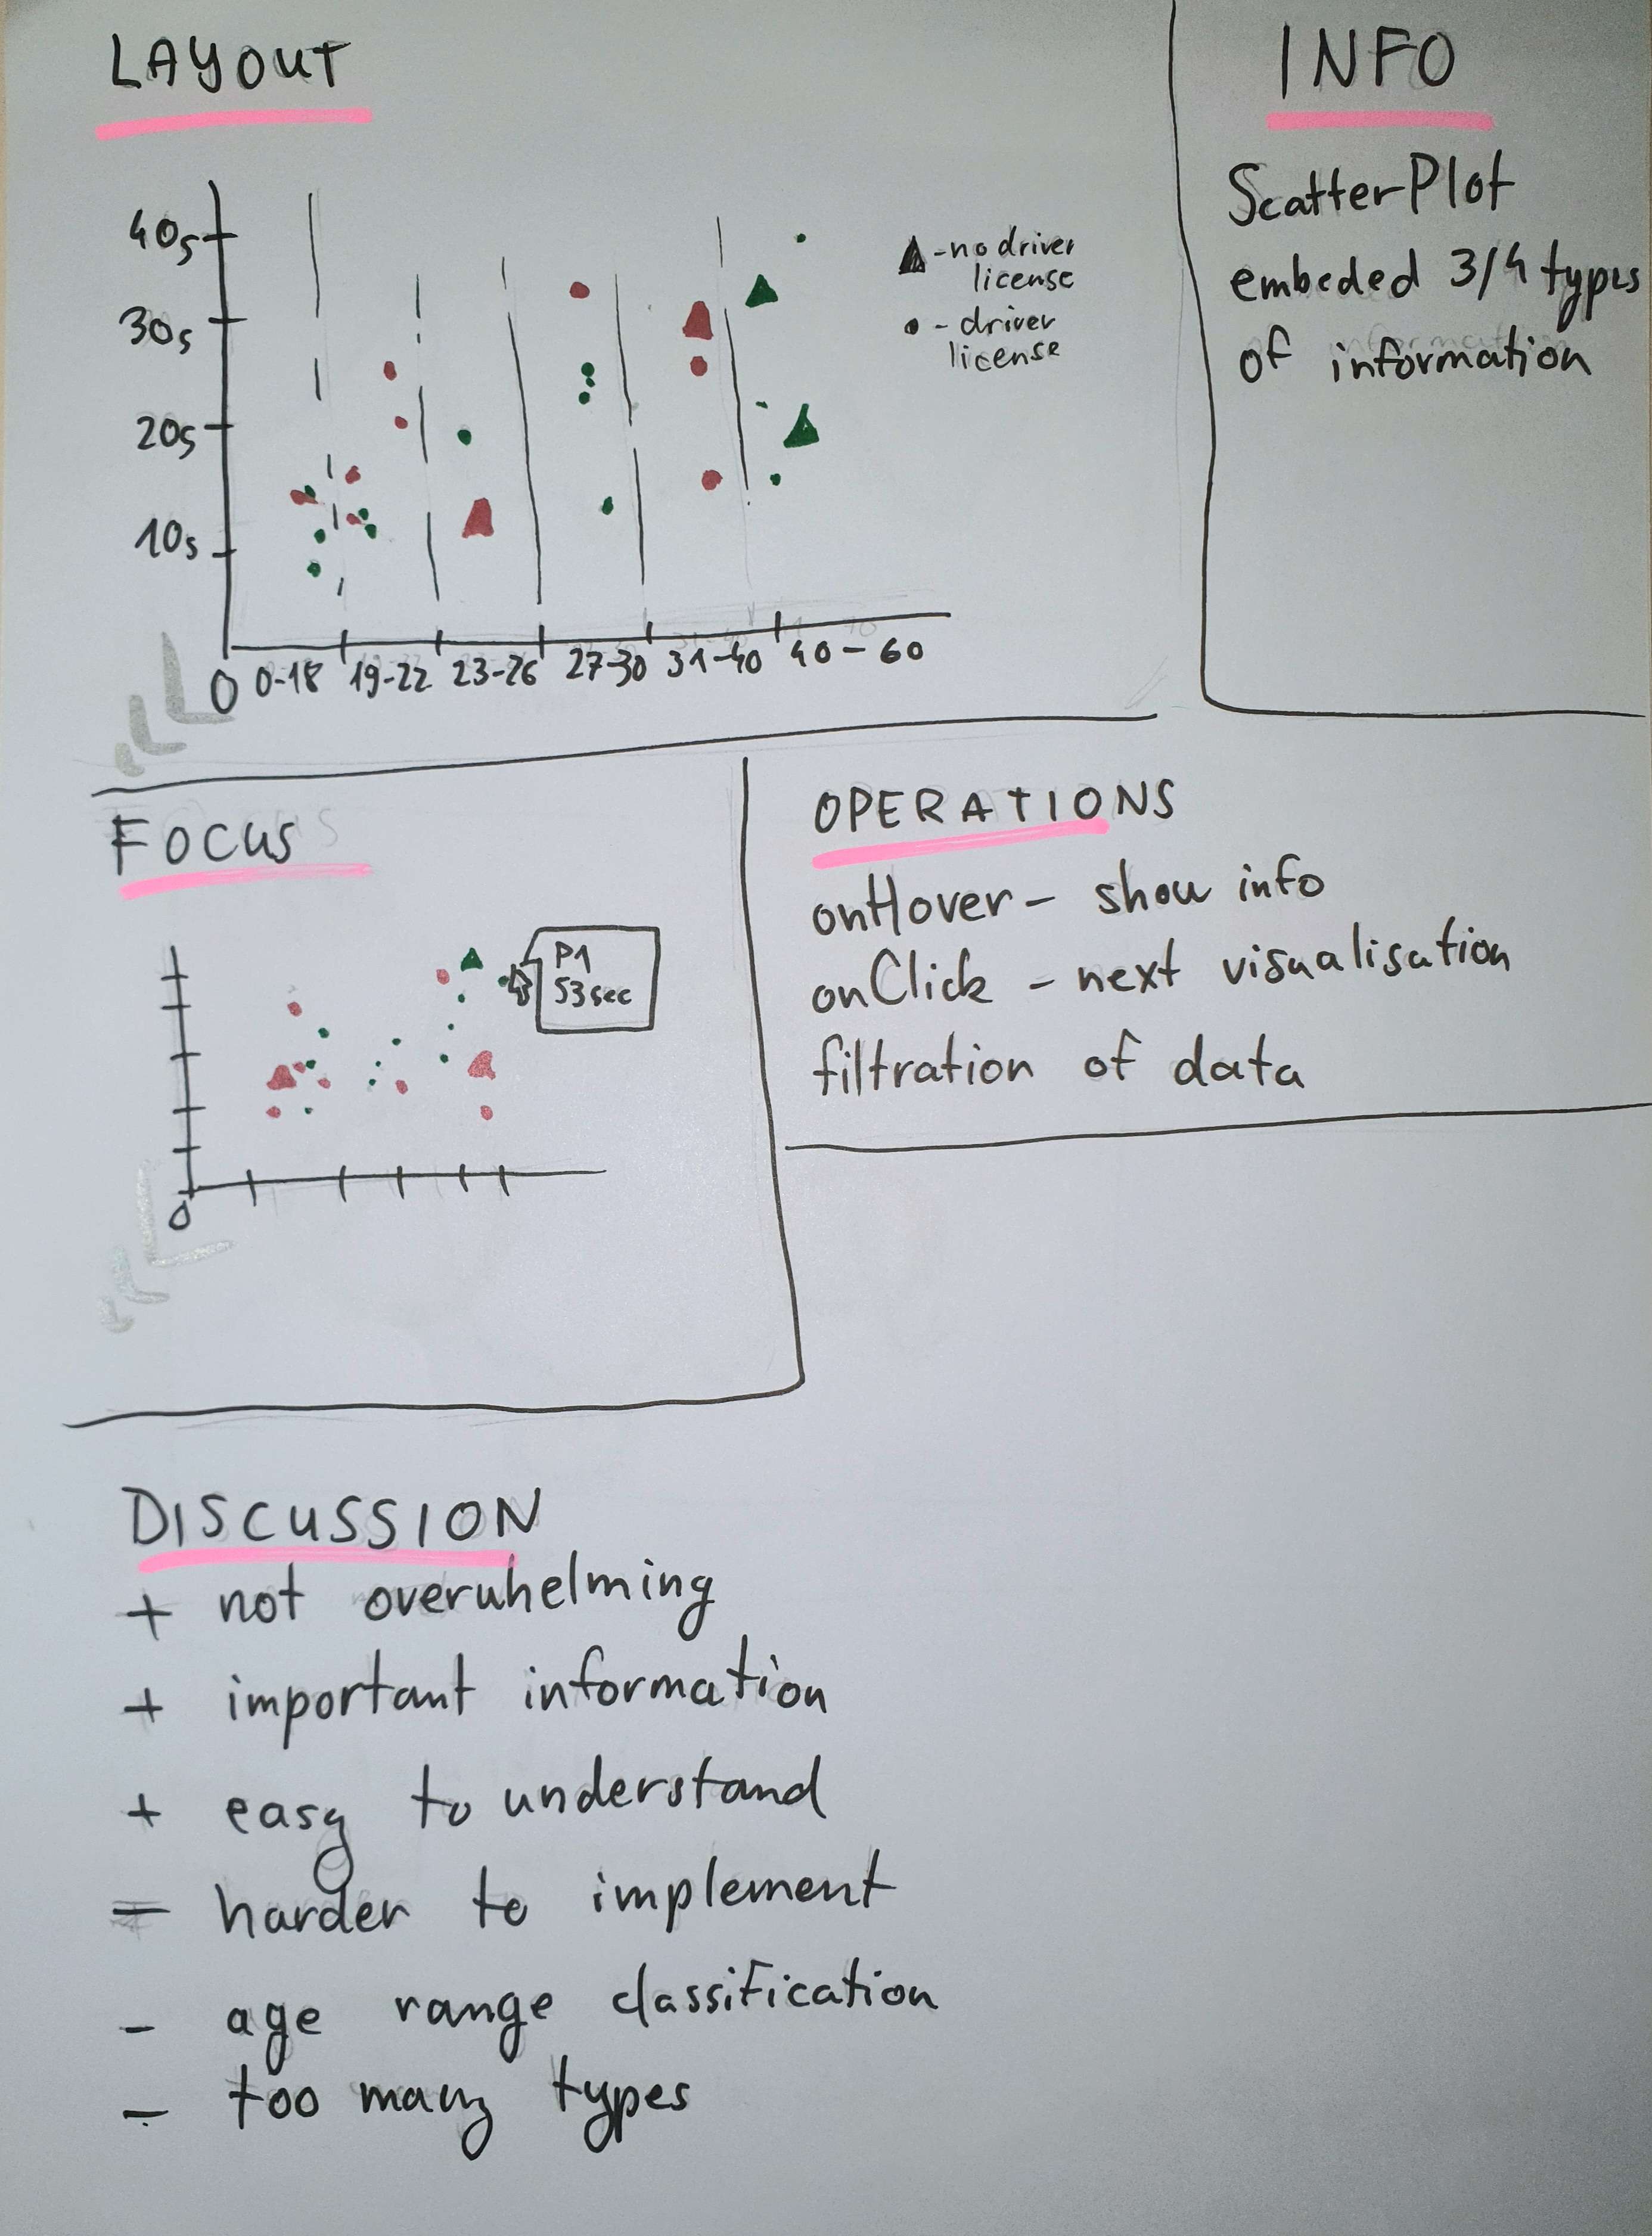 LAYOUT
40s
30s
20s
10s
0
0-18 19-22 23-26 27-30 31-40 40-60
▲ - no driver
license
• - driver
license
INFO
ScatterPlot
embeded 3/4 types
of information
FOCUS
P1
53sec
0
OPERATIONS
onHover - show info
onClick - next visualisation
filtration of data
DISCUSSION
+ not overwhelming
+ important information
+ easy to understand
= harder to implement
- age range classification
- too many types